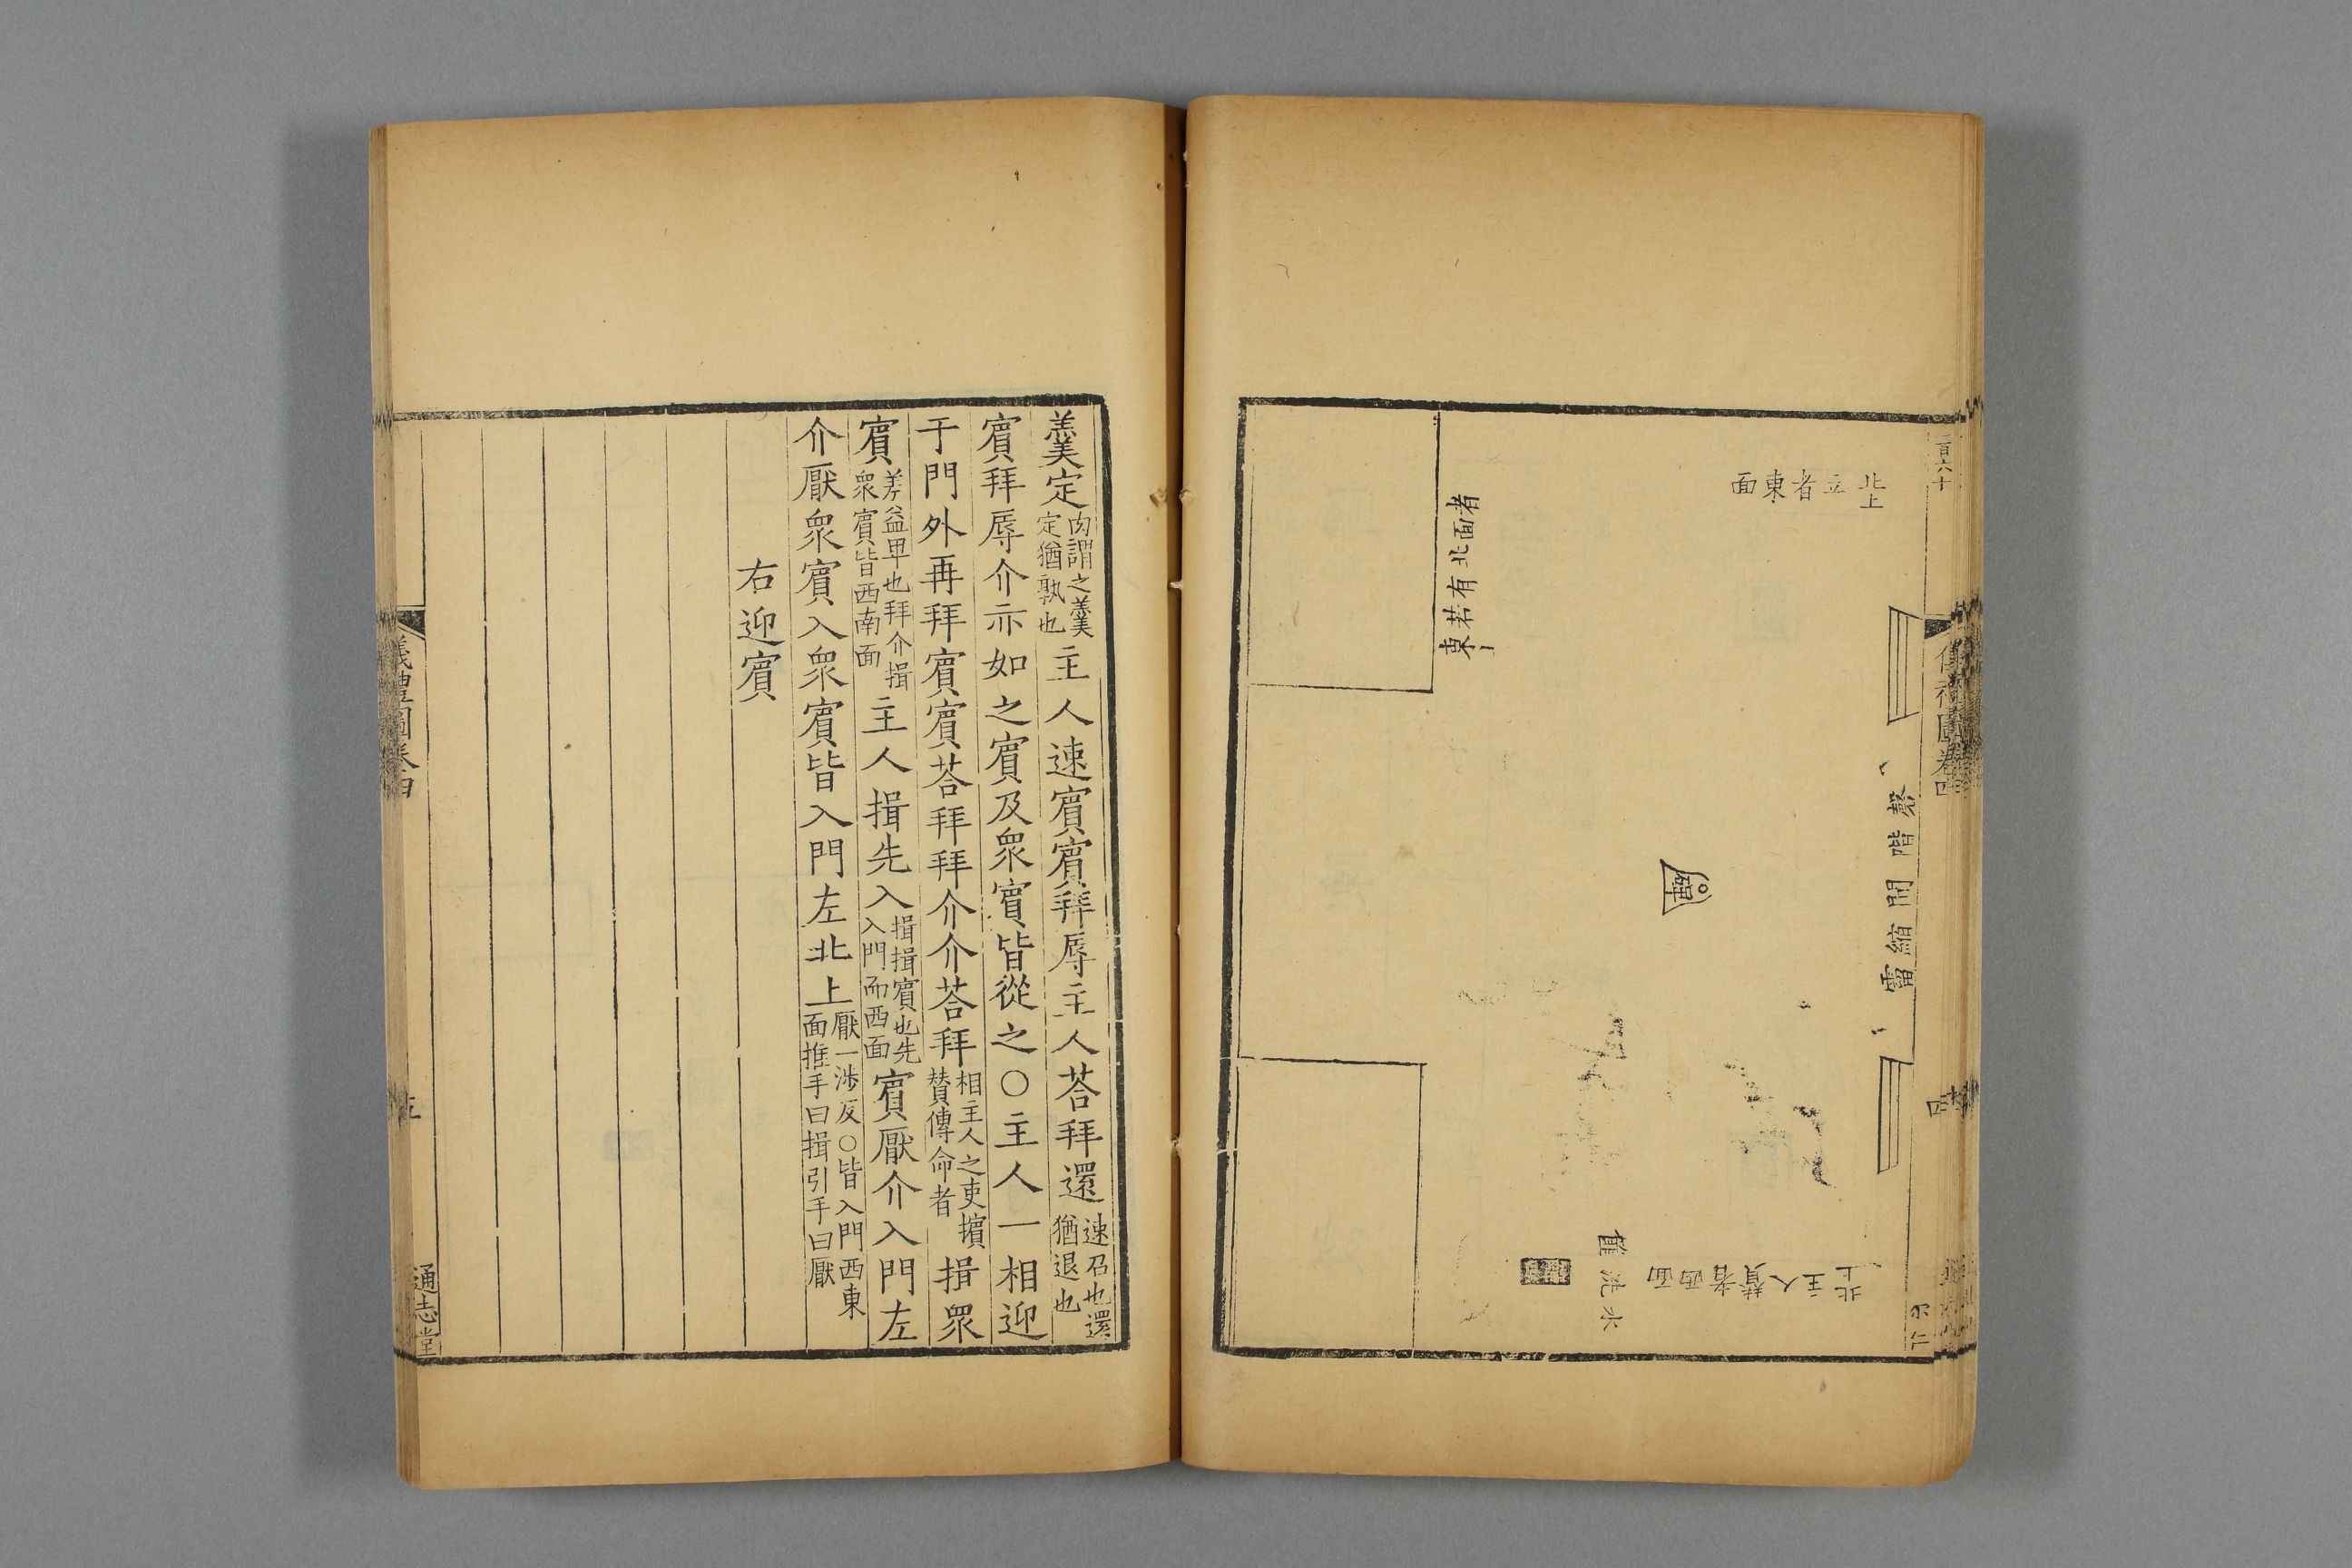 二百六十
北上
立者東面
儀禮圖卷四
四
東若有北面者
磬階間縮霤
北上
主人贊者西面
水
洗
篚
羹定肉謂之羹定猶孰也主人速賓賓拜辱主人荅拜還速召也還猶退也
賓拜辱介亦如之賓及衆賓皆從之○主人一相迎
于門外再拜賓賓荅拜拜介介荅拜相主人之吏擯贊傳命者揖衆
賓差益卑也拜介揖衆賓皆西南面主人揖先入揖揖賓也先入門而西面賓厭介入門左
介厭衆賓入衆賓皆入門左北上厭一涉反○皆入門西東面推手曰揖引手曰厭
右迎賓
儀禮圖卷四
五
通志堂